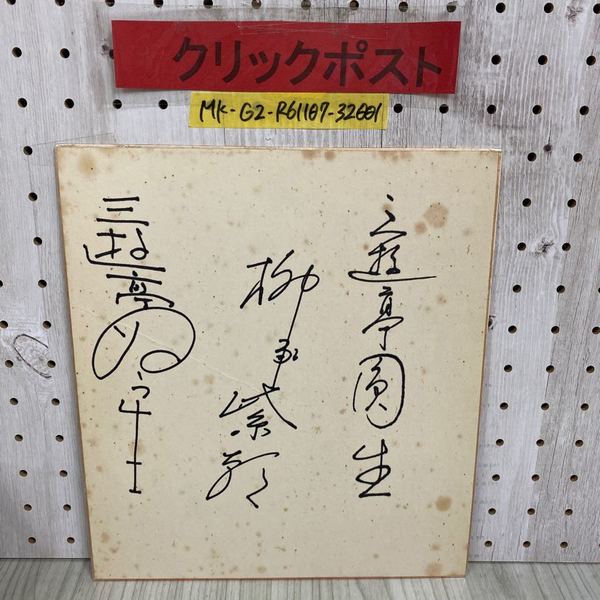 クリックポスト
MK-G2-R61107-32601
三遊亭圓生
柳家紫朝
三遊亭